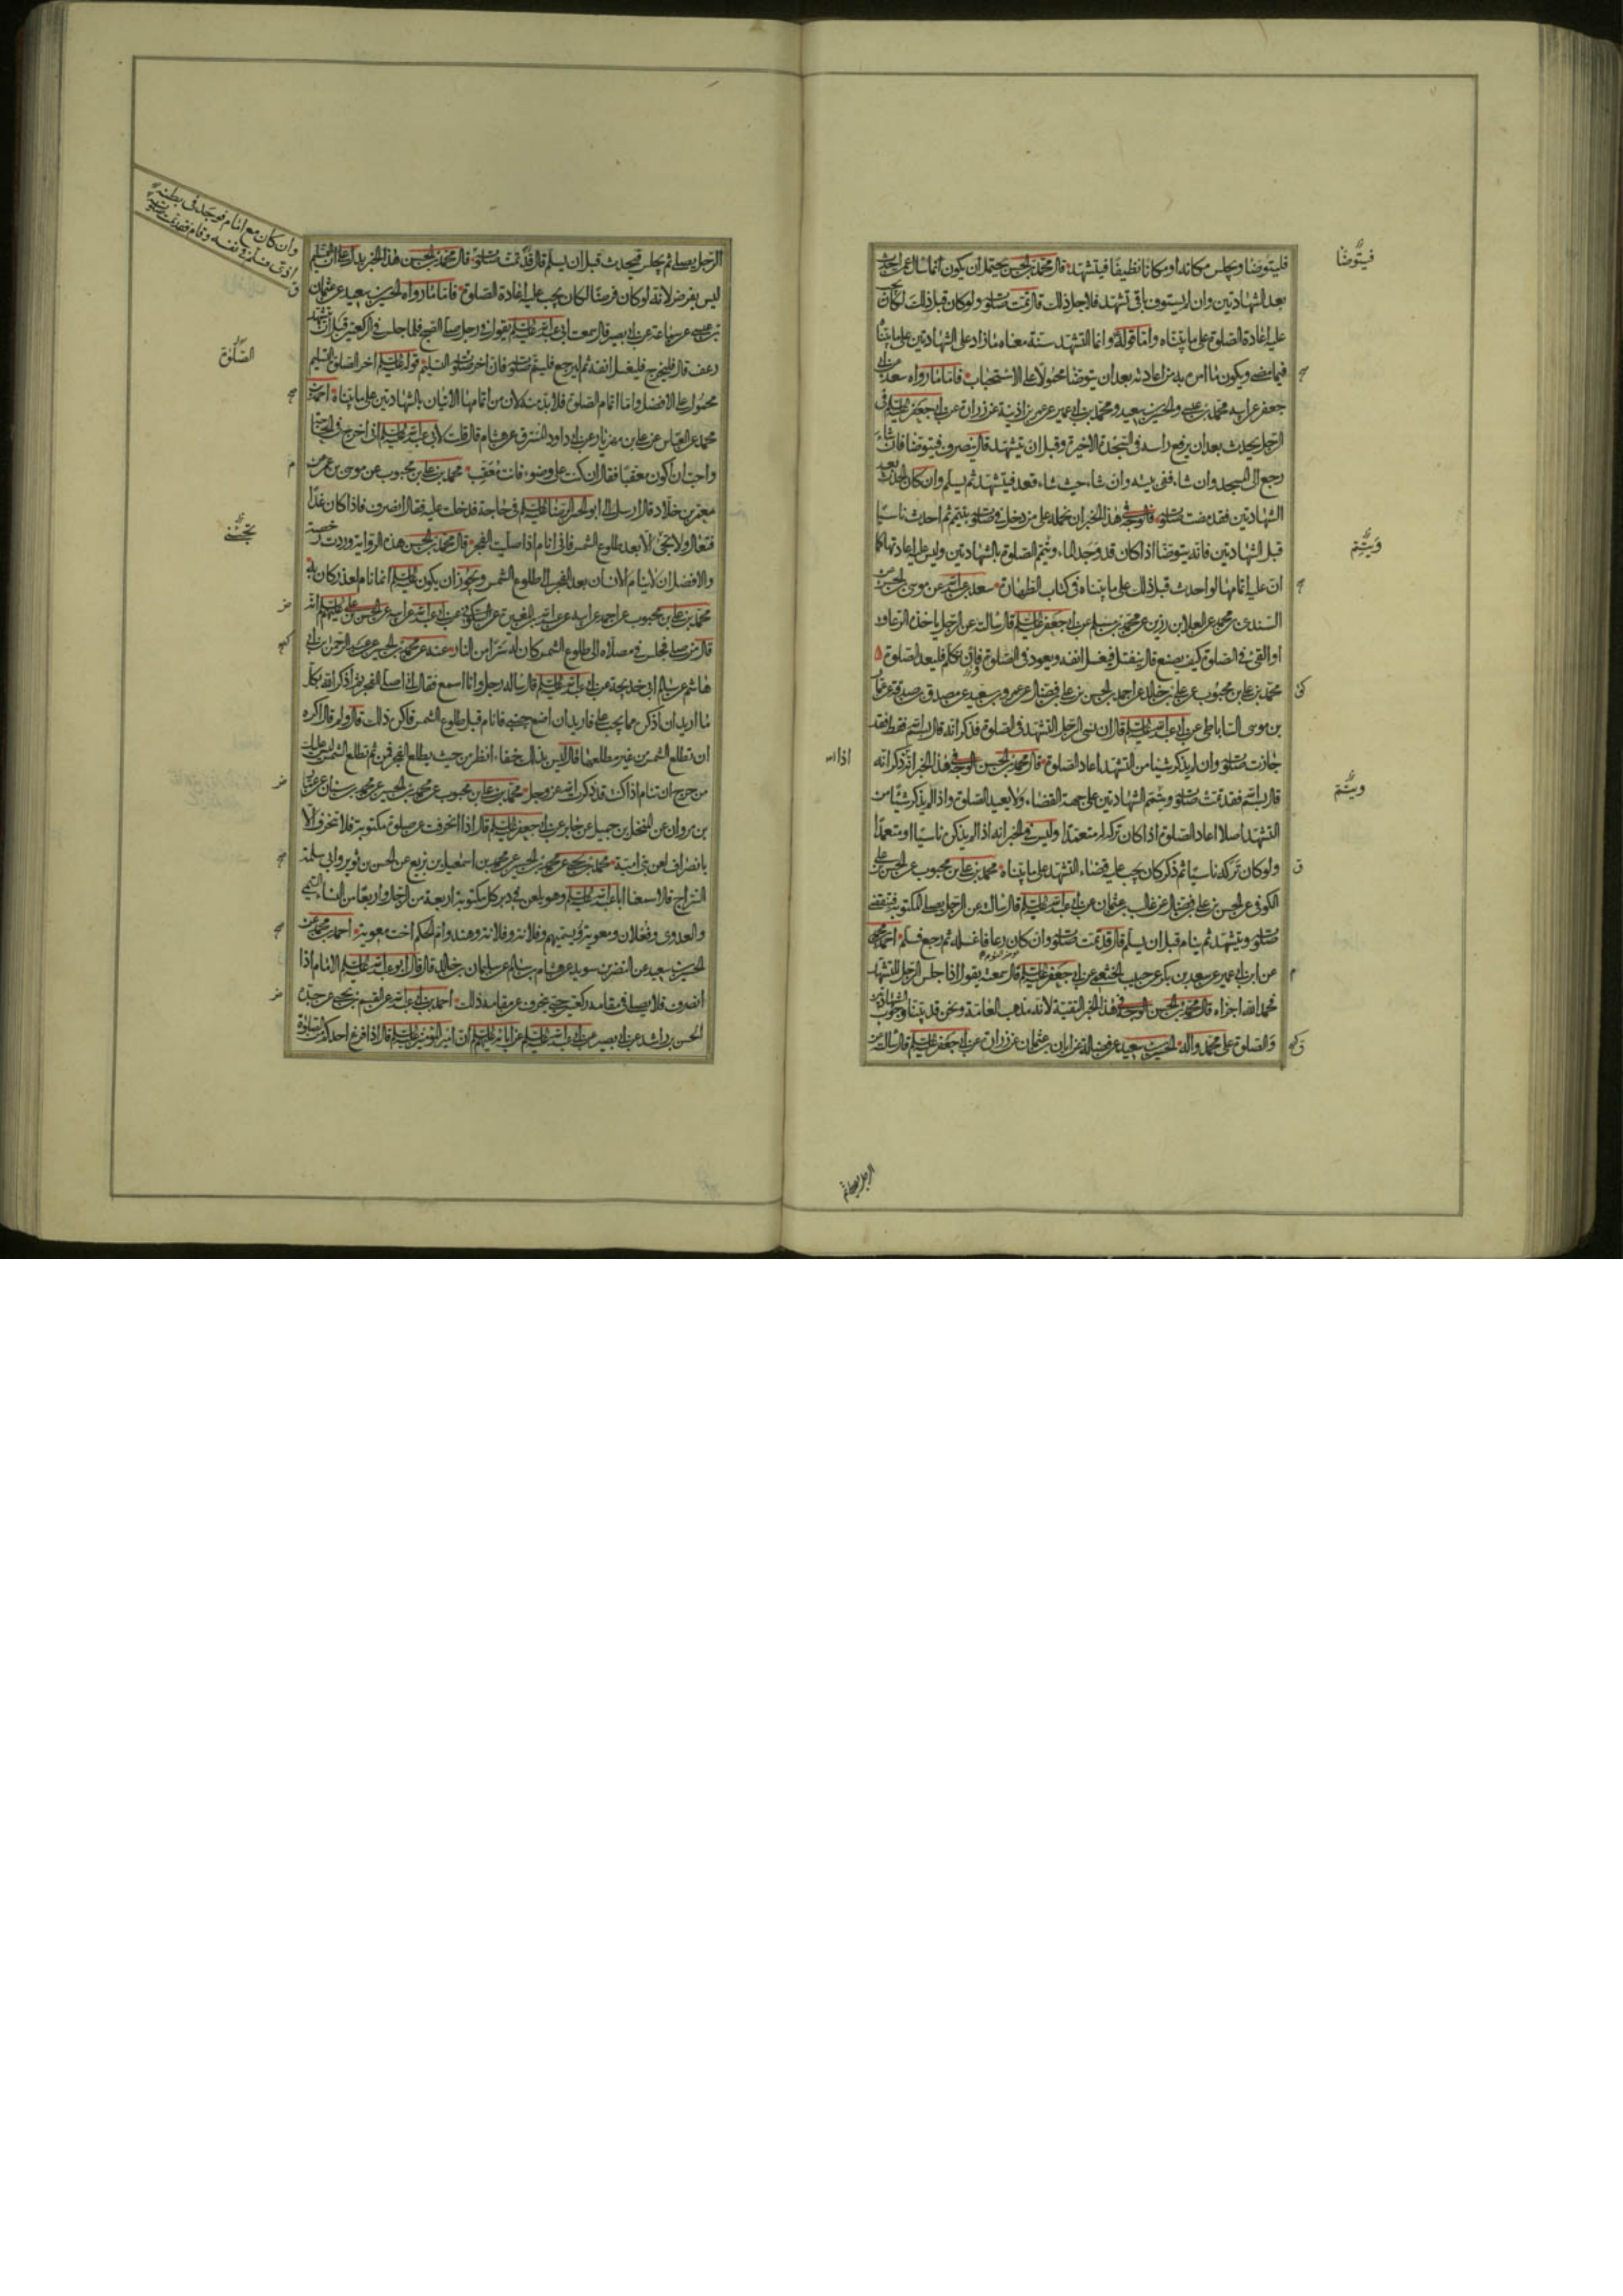 فليتوضأ ويجلس مكانه او مكانا نظيفا فيتشهد قال محمد بن الحسن يحتمل ان يكون انما سال عن احدث
بعد الشهادتين وان لم يستوف باقي تشهده فلاجل ذلك قال تمت صلوته ولو كان قبل ذلك لكان يجب
عليه اعادة الصلوة على ما بيناه واما قوله وانما التشهد سنة معناه ما زاد على الشهادتين على ما بيناه
فيما مضى ويكون ما امر به من اعادته بعد ان يتوضا محمولا على الاستحباب فاما ما رواه سعد عن ابي
جعفر عن ابيه محمد بن عيسى والحسين بن سعيد ومحمد بن ابي عمير عن عمر بن اذينة عن زرارة عن ابي جعفر عليه السلم في
الرجل يحدث بعد ان يرفع راسه في السجدة الاخيرة وقبل ان يتشهد قال ينصرف فيتوضا فان شاء
رجع الى المسجد وان شاء ففي بيته وان شاء حيث شاء قعد فيتشهد ثم يسلم وان كان الحدث بعد
الشهادتين فقد مضت صلوته فالوجه في هذا الخبر ان نحمله على من دخل في صلوته بتيمم ثم احدث ناسيا
قبل الشهادتين فانه يتوضا اذا كان قد وجد الماء ويتم الصلوة بالشهادتين وليس عليه اعادتها كما
ان عليه اتمامها لو احدث قبل ذلك على ما بيناه في كتاب الطهارة سعد بن عبد الله عن موسى بن الحسن عن
السندي بن محمد عن العلا بن رزين عن محمد بن مسلم عن ابي جعفر عليه السلم قال سالته عن الرجل ياخذه الرعاف
او القيء في الصلوة كيف يصنع قال ينفتل فيغسل انفه ويعود في الصلوة وان تكلم فليعد الصلوة
محمد بن علي بن محبوب عن علي بن خالد عن احمد بن الحسن بن علي بن فضال عن عمرو بن سعيد عن مصدق بن صدقة عن عمار
بن موسى الساباطي عن ابي عبد الله عليه السلم قال ان نسي الرجل التشهد في الصلوة فذكر انه قال بسم الله فقط فقد
جازت صلوته وان لم يذكر شيئا من التشهد اعاد الصلوة قال محمد بن الحسن الوجه في هذا الخبر انه ذكر انه
قال بسم الله فقد تمت صلوته ويتمم الشهادتين على جهة القضاء ولا يعيد الصلوة واذا لم يذكر شيئا من
التشهد اصلا اعاد الصلوة اذا كان تركه متعمدا وليس في الخبر انه اذا لم يذكر ناسيا او متعمدا
ولو كان تركه ناسيا ثم ذكر كان يجب عليه قضاء التشهد على ما بيناه محمد بن علي بن محبوب عن الحسن بن علي
الكوفي عن الحسن بن علي بن فضال عن غالب بن عثمان عن ابي عبد الله عليه السلم قال سالته عن الرجل يصلي المكتوبة فيقضي
صلوته ويتشهد ثم ينام قبل ان يسلم قال قد تمت صلوته وان كان رعافا غسله ثم رجع فسلم احمد بن محمد
عن ابن ابي عمير عن سعيد بن بكر عن حبيب الخثعمي عن ابي جعفر عليه السلم قال سمعته يقول اذا جلس الرجل للتشهد
فحمد الله اجزاه قال محمد بن الحسن الوجه في هذا الخبر التقية لانه مذهب العامة ونحن قد بينا وجوب الشهادتين
والصلوة على محمد واله الحسين بن سعيد عن فضالة عن ابان بن عثمان عن زرارة عن ابي جعفر عليه السلم قال سالته عن
فيتوضا
ويتم
اذا
ويتم
الرجل يصلي ثم
الرجل يصلي ثم يجلس فيحدث قبل ان يسلم قال قد تمت صلوته قال محمد بن الحسن هذا الخبر يدل على ان التسليم
ليس بفرض لانه لو كان فرضا لكان يجب عليه اعادة الصلوة فاما ما رواه الحسين بن سعيد عن عثمان
بن عيسى عن سماعة عن ابي بصير قال سمعت ابي عبد الله عليه السلم يقول في رجل صلى الصبح فلما جلس في الركعتين قبل ان يتشهد
رعف قال فليخرج فليغسل انفه ثم ليرجع فليتم صلوته فان اخر صلوته التسليم قوله عليه السلم اخر الصلوة التسليم
محمول على الافضل واما اتمام الصلوة فلابد منه لان من اتمامها الاتيان بالشهادتين على ما بيناه احمد بن
محمد عن العباس عن علي بن مهزيار عن ابي داود المسترق عن هشام قال قلت لابي عبد الله عليه السلم اني اخرج في الحاجة
واحب ان اكون معقبا فقال ان كنت على وضوء فانت معقب محمد بن علي بن محبوب عن موسى بن عمر عن
معمر بن خلاد قال ارسل الي ابو الحسن الرضا عليه السلم في حاجة فدخلت عليه فقال انصرف فاذا كان غدا
فتعال ولا تجئ الا بعد طلوع الشمس فاني انام اذا صليت الفجر قال محمد بن الحسن هذه الرواية وردت رخصة
والافضل ان لا ينام الانسان بعد الفجر الى طلوع الشمس ويجوز ان يكون عليه السلم انما نام لعذر كان به
محمد بن علي بن محبوب عن احمد عن ابيه عن عبد الله بن المغيرة عن السكوني عن ابي عبد الله عن ابيه عن الحسن بن علي عليهم السلم انه
قال من صلى فجلس في مصلاه الى طلوع الشمس كان له سترا من النار عنه عن محمد بن الحسين عن عبد الرحمن بن ابي
هاشم عن سالم ابي خديجة عن ابي عبد الله عليه السلم قال ساله رجل وانا اسمع فقال اني اصلي الفجر ثم اذكر الله بكل
ما اريد ان اذكره مما يجب علي فاريد ان اضع جنبي فانام قبل طلوع الشمس فاكره ذلك قال ولم قال اكره
ان تطلع الشمس من غير مطلعها قال ليس بذلك خفاء انظر من حيث يطلع الفجر فمن ثم تطلع الشمس ليس عليك
من حرج ان تنام اذا كنت قد ذكرت الله عز وجل محمد بن علي بن محبوب عن محمد بن الحسين عن محمد بن سنان عن عمار
بن مروان عن المنخل بن جميل عن جابر عن ابي جعفر عليه السلم قال اذا انحرفت عن صلوة مكتوبة فلا تنحرف الا
بانصراف لعن بني امية محمد بن يحيى عن محمد بن الحسين عن محمد بن اسمعيل بن بزيع عن الحسن بن ثوير وابي سلمة
السراج قالا سمعنا ابا عبد الله عليه السلم وهو يلعن في دبر كل مكتوبة اربعة من الرجال واربعا من النساء التيمي
والعدوي وفعلان ومعوية ويسميهم وفلانة وفلانة وهند وام الحكم اخت معوية احمد بن محمد عن
الحسين بن سعيد عن النضر بن سويد عن هشام بن سالم عن سليمان بن خالد قال قال ابو عبد الله عليه السلم الامام اذا
انصرف فلا يصلي في مقامه ركعتين حتى ينحرف عن مقامه ذلك احمد بن ابي عبد الله عن القسم بن يحيى عن جده
الحسن بن راشد عن ابي بصير عن ابي عبد الله عليه السلم عن ابائه عليهم السلم ان امير المومنين عليه السلم قال اذا فرغ احدكم من الصلوة
وان كان مع امام فوجد في بطنه
اذى فسلم في نفسه وقام فقد تمت صلوته
الصلوة
تجئني